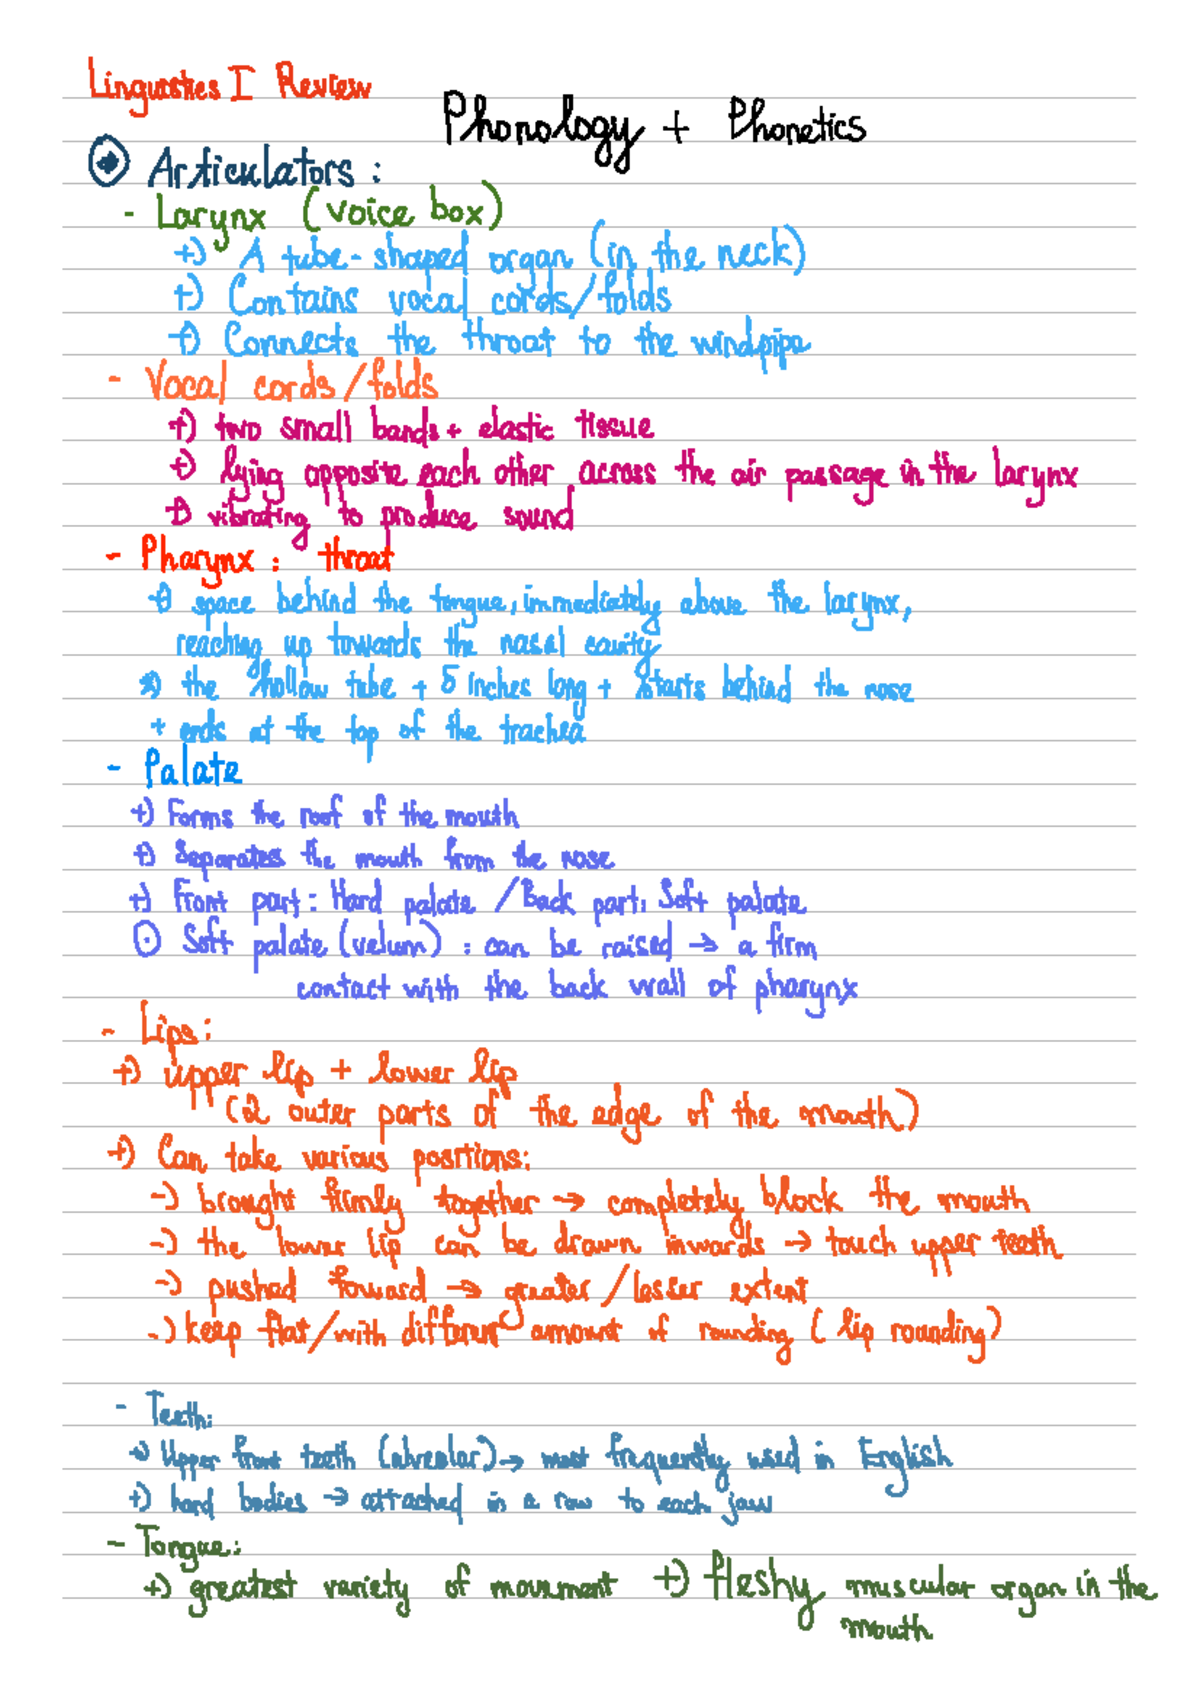 Linguistics I Review
Phonology + Phonetics
Articulators :
- Larynx (voice box)
+) A tube-shaped organ (in the neck)
+) Contains vocal cords/folds
+) Connects the throat to the windpipe
- Vocal cords/folds
+) two small bands + elastic tissue
+) lying opposite each other across the air passage in the larynx
+) vibrating to produce sound
- Pharynx : throat
+) space behind the tongue, immediately above the larynx,
reaching up towards the nasal cavity
+) the hollow tube + 5 inches long + starts behind the nose
+ ends at the top of the trachea
- Palate
+) Forms the roof of the mouth
+) Separates the mouth from the nose
+) Front part: Hard palate / Back part: Soft palate
⊙ Soft palate (velum) : can be raised → a firm
contact with the back wall of pharynx
- Lips:
+) upper lip + lower lip
(2 outer parts of the edge of the mouth)
+) Can take various positions:
-) brought firmly together → completely block the mouth
-) the lower lip can be drawn inwards → touch upper teeth
-) pushed foward → greater / lesser extent
-) keep flat/with different amount of rounding ( lip rounding)
- Teeth:
+) Upper front teeth (alveolar) → most frequently used in English
+) hard bodies → attached in a row to each jaw
- Tongue:
+) greatest variety of movement +) fleshy muscular organ in the
mouth